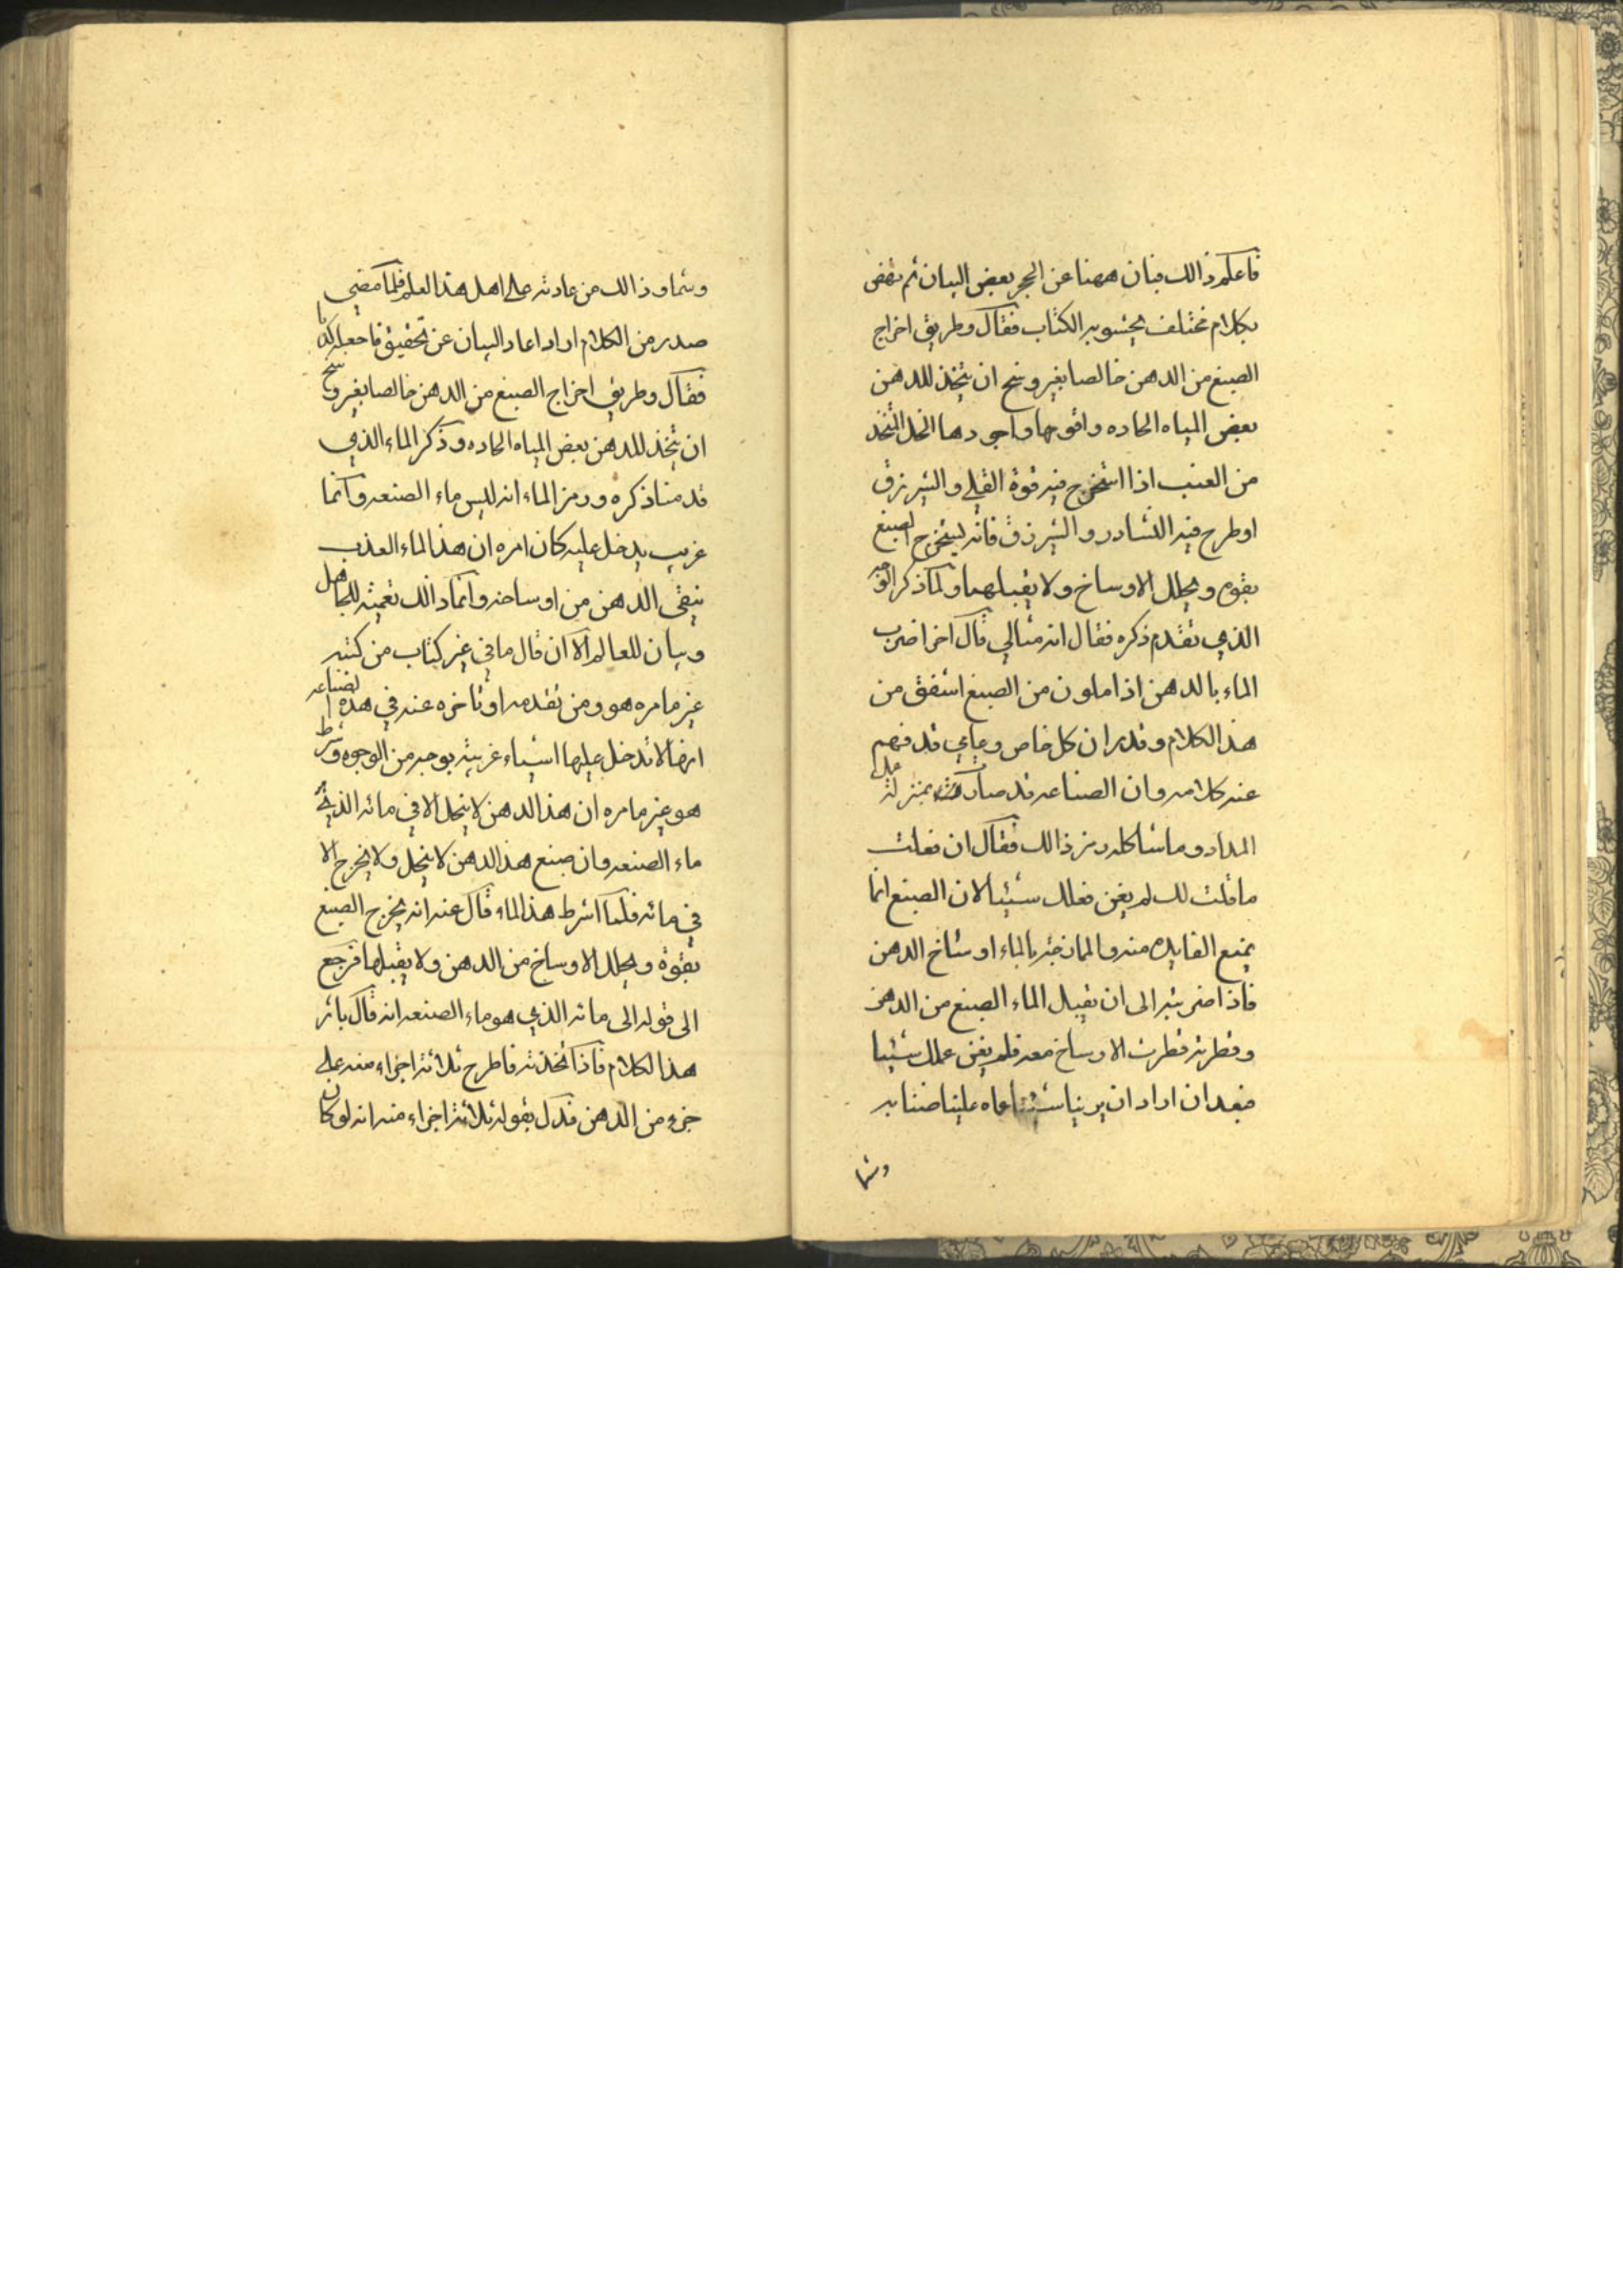 فاعلم ذالك فبان ههنا عن الحجر بعض البيان ثم نهض
بكلام مختلف يحشو به الكتاب فقال وطريق اخراج
الصبغ من الدهن خالصا بغير وسخ ان يتخذ للدهن
بعض المياه الحاده واقوىها واجودها الخل المتخذ
من العنب اذا استخرج فيه قوة القلي والشيرزق
او طرح فيه النشادر والشيرزق فانه يستخرج الصبغ
بقوه ويحلل الاوساخ ولا يقبلهما ولما ذكر
الذي تقدم ذكره فقال انه مثالي قال اخر اضرب
الماء بالدهن اذا ملون من الصبغ اشفق من
هذا الكلام وقدر ان كل خاص وعامي قد فهم
عنه كلامه وان الصناعه قد صارت بمنزلة
المداد وما شاكله رمز ذالك فقال ان فعلت
ما قلت لك لم يغن فعلك شيئا لان الصبغ انما
يمنع الفايده منه والممازجته بالماء اوساخ الدهن
فاذا ضربته الى ان يقبل الماء الصبغ من الدهن
وقطرته قطرت الاوساخ معه فلم يغن عملك شيئا
فبعد ان اراد ان يرينا شيئا عماه علينا ضنا به
وشما
وشما وذالك من عادته على اهل هذا العلم فلما مضى
صدر من الكلام اراد اعاد البيان عن تحقيق ما جعله
فقال وطريق اخراج الصبغ من الدهن خالصا بغير وسخ
ان يتخذ للدهن بعض المياه الحاده وذكر الماء الذي
قدمنا ذكره ورمز الماء انه ليس ماء الصنعه وانما
غريب يدخل عليه كان امره ان هذا الماء العذب
ينقى الدهن من اوساخه وانما ذالك تعميته للجاهل
وبيان للعالم الا ان قال ما في غير كتاب من كتبه
غير ما مره هو ومن تقدمه او تأخره عنه في هذه الصناعه
انها لا تدخل عليها اشياء غريبة بوجه من الوجوه وشرط
هو غير ما مره ان هذا الدهن لا ينحل الا في مائه الذي
ماء الصنعه وان صبغ هذا الدهن لا ينحل ولا يخرج الا
في مائه فلما اشرط هذا الماء قال عنه انه يخرج الصبغ
بقوة ويحلل الاوساخ من الدهن ولا يقبلها فرجع
الى قوله الى مائه الذي هو ماء الصنعه انه قال باثر
هذا الكلام فاذا اتخذته فاطرح ثلاثة اجزاء منه على
جزء من الدهن فدل بقوله ثلاثة اجزاء منه انه لو كان